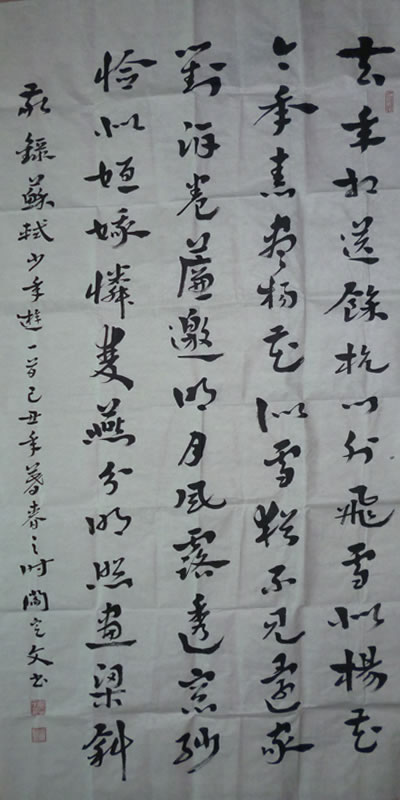 去年相送餘杭门外飛雪似楊花
今年春盡楊花似雪猶不見還家
對酒卷簾邀明月風露透窗紗
恰似姮娥憐雙燕分明照畫梁斜
敬錄蘇軾少年遊一首己丑年暮春之时文书